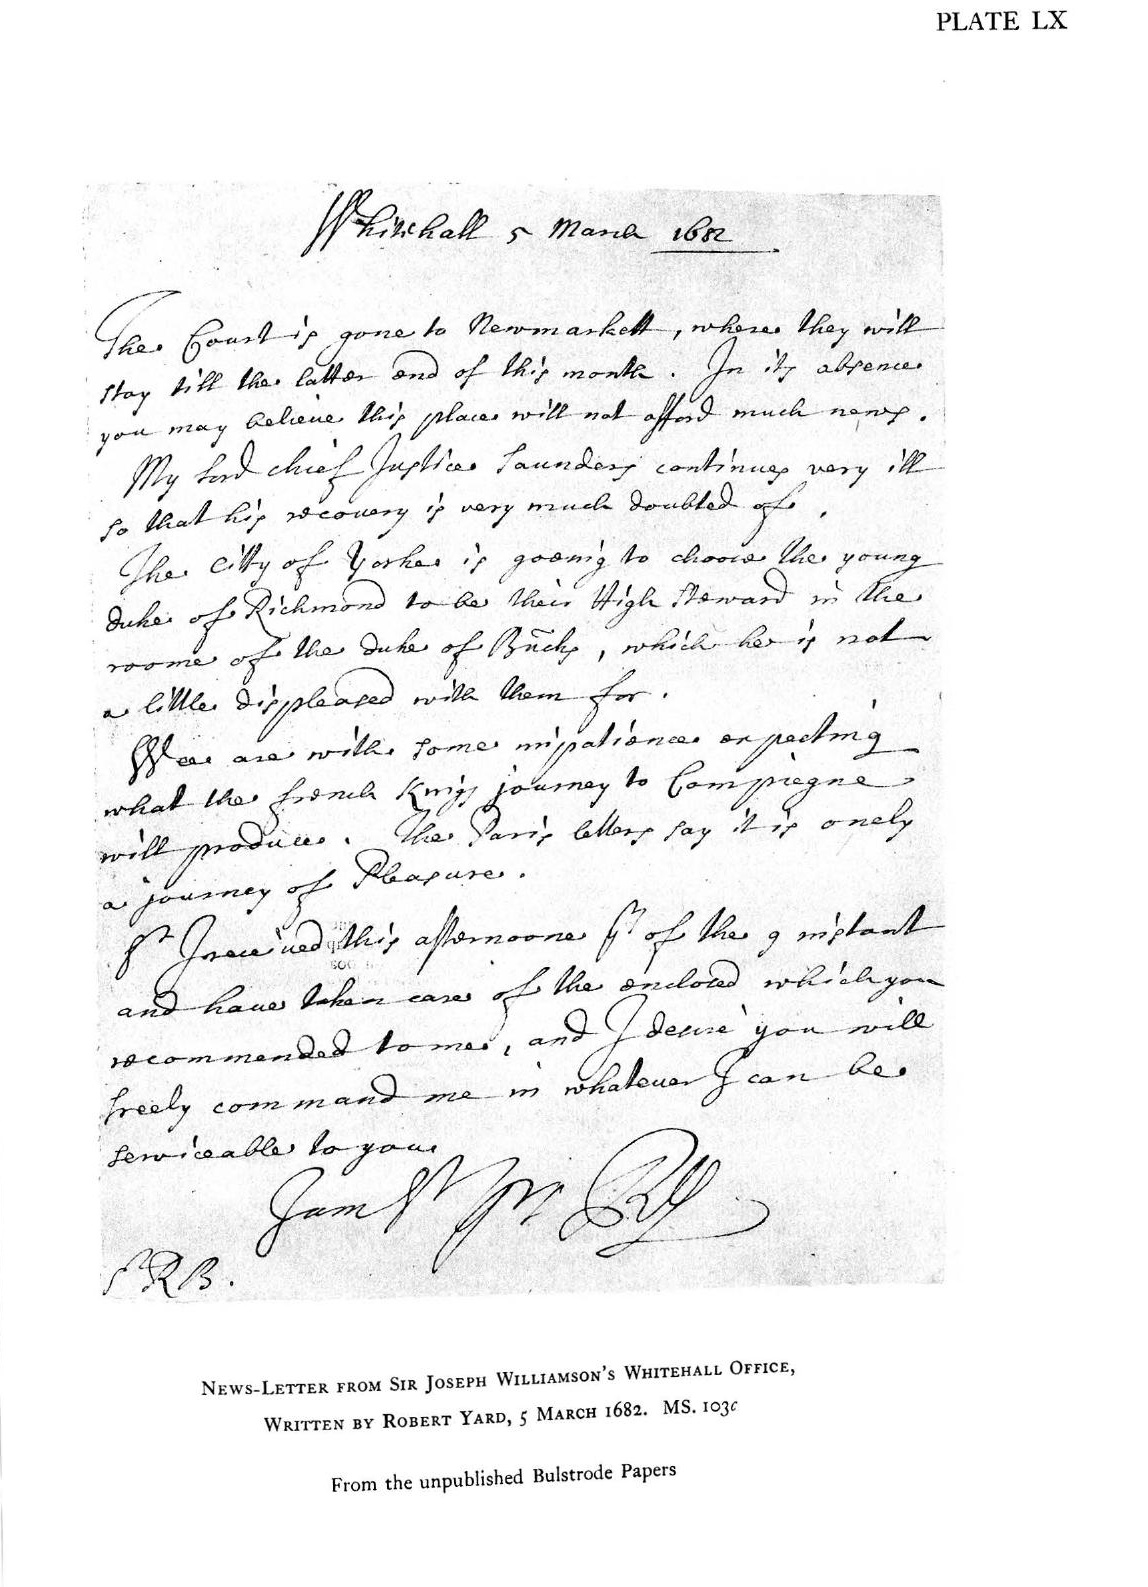 PLATE LX
Whitehall 5 March 1682
The Court is gone to Newmarkett, where they will
stay till the latter end of this month. In its absence
you may believe this place will not afford much news.
My Lord chief Justice Saunders continues very ill
so that his recovery is very much doubted of.
The Citty of Yorke is goeing to choose the young
duke of Richmond to be their High Steward in the
roome of the duke of Bucks, which he is not
a little displeased with them for.
Wee are with some impatience expecting
what the french Kings journey to Compiegne
will produce. The Paris letters say it is onely
a journey of Pleasure.
Sr I received this afternoone yrs of the 9 instant
and have taken care of the enclosed which you
recommended to me, and I desire you will
freely command me in whatever I can be
serviceable to you.
I am Sr yr RY
Sr RB.
NEWS-LETTER FROM SIR JOSEPH WILLIAMSON'S WHITEHALL OFFICE,
WRITTEN BY ROBERT YARD, 5 MARCH 1682. MS. 103c
From the unpublished Bulstrode Papers